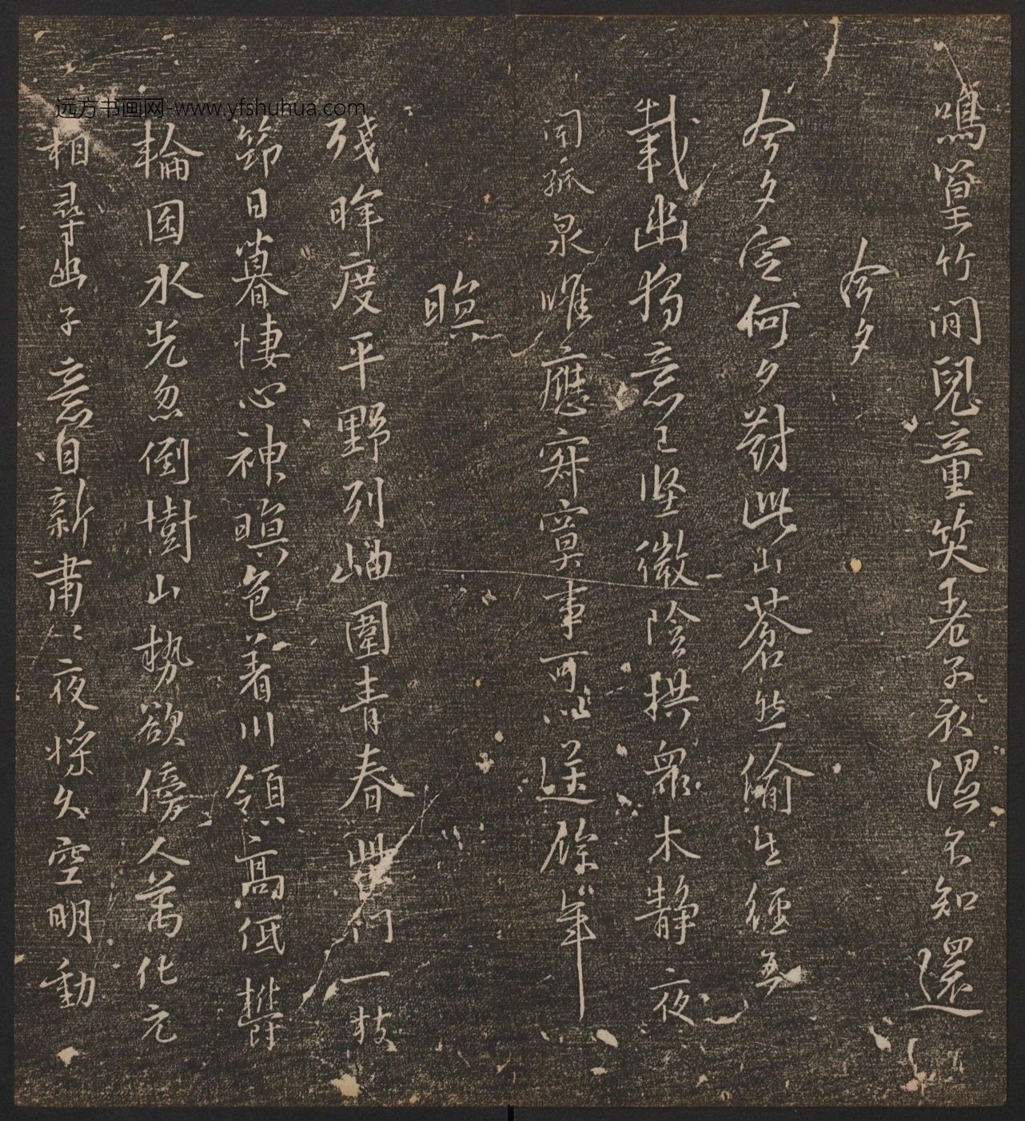 鳴篁竹間兒童笑老子衣濕不知還
今夕
今夕定何夕對此山蒼然偷生經五
載幽獨意已堅微陰拱眾木靜夜
聞孤泉唯應寂寞事可以送餘年
暝
殘暉度平野列岫圍青春柴一枝
筇日暮棲心神暝色着川嶺高低鬱
輪囷水光忽倒樹山勢欲傍人萬化元
相尋幽子意自新肅〻夜將久空明動
远方书画网-www.yfshuhua.com